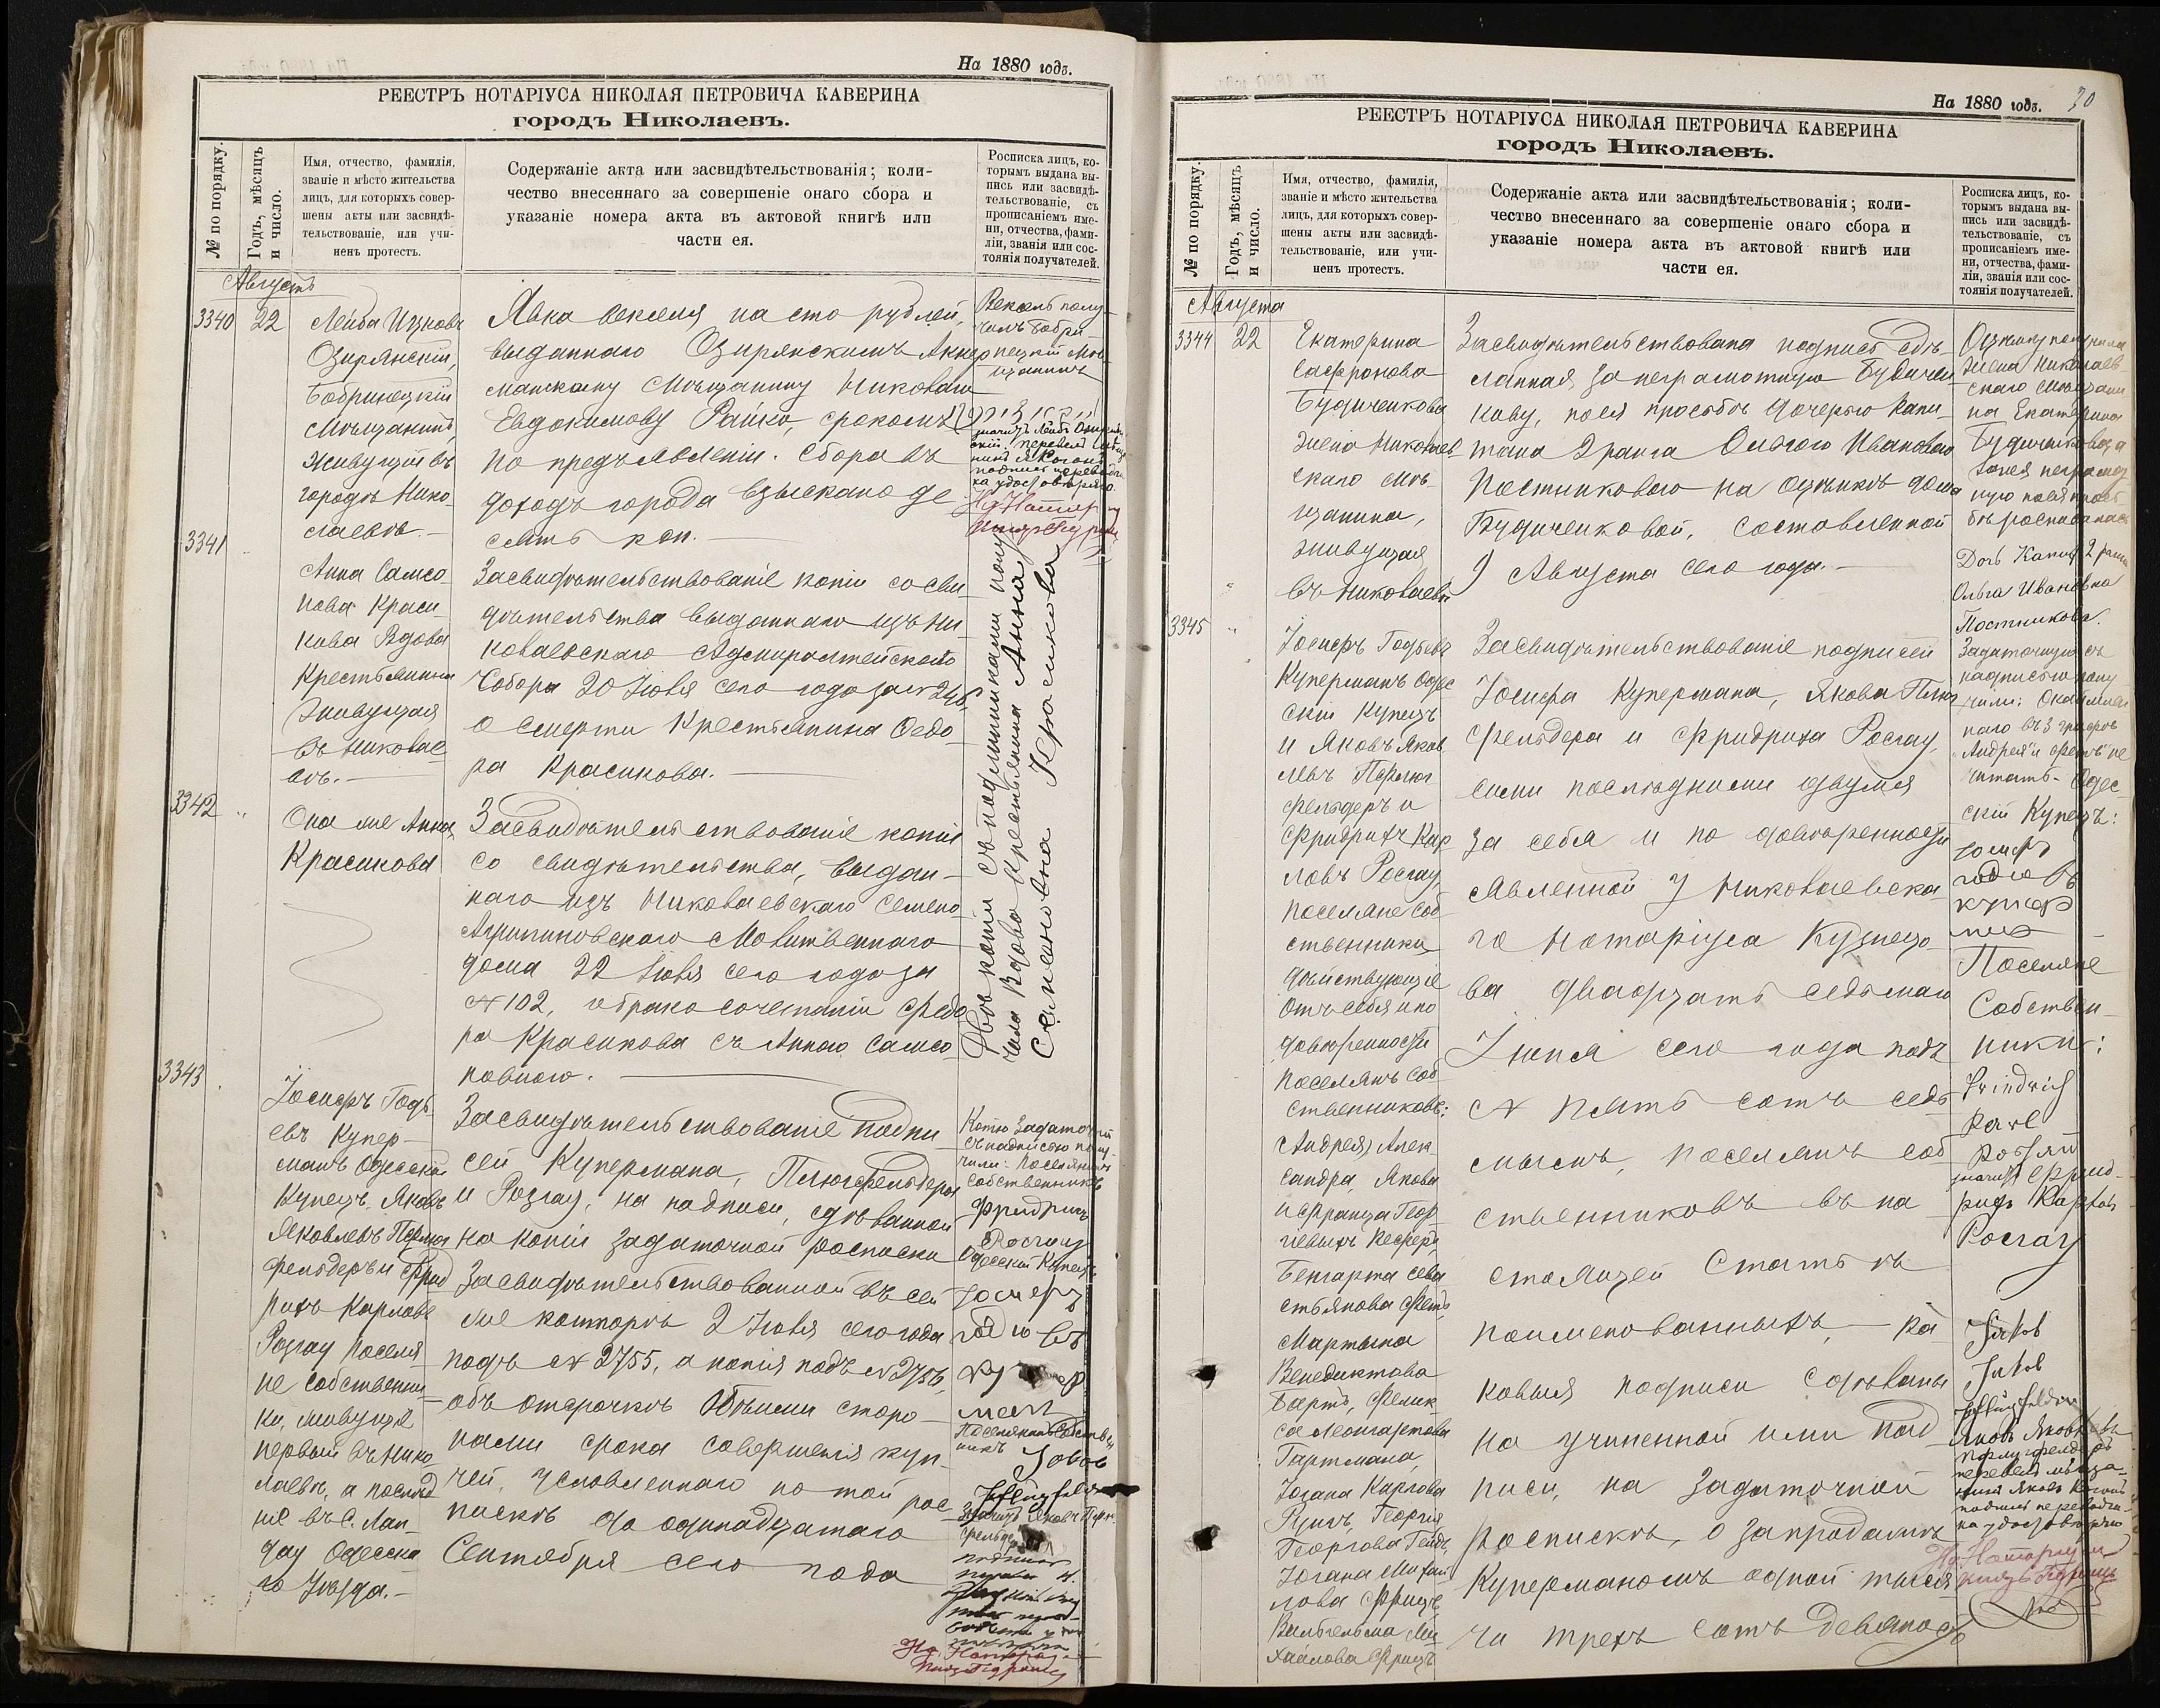 На 1880 годъ.
РЕЕСТРЪ НОТАРІУСА НИКОЛАЯ ПЕТРОВИЧА КАВЕРИНА
городъ Николаевъ.
№ по порядку.
Годъ, мѣсяцъ
и число.
Имя, отчество, фамилія,
званіе и мѣсто жительства
лицъ, для которыхъ совер-
шены акты или засвидѣ-
тельствованіе, или учи-
ненъ протестъ.
Содержаніе акта или засвидѣтельствованія; коли-
чество внесеннаго за совершеніе онаго сбора и
указаніе номера акта въ актовой книгѣ или
части ея.
Росписка лицъ, ко-
торымъ выдана вы-
пись или засвидѣ-
тельствованіе, съ
прописаніемъ име-
ни, отчества, фами-
ліи, званія или сос-
тоянія получателей.
Августъ
3340
22
Лейба Ицковъ
Озирянскій,
Бобринецкій
Мѣщанинъ,
живущій въ
городѣ Нико-
лаевѣ.
Явка векселя на сто рублей,
выданнаго Озирянскимъ Аккер
манскому Мѣщанину Николаю
Евдокимову Райко, срокомъ
по предъявленіи. Сбора въ
доходъ города взыскано де
сять коп.
Вексель полу-
чилъ Бобри-
нецкій Мѣ-
щанинъ
3341
Анна Самсо-
нова Краси-
кова Вдова
Крестьянина
живущая
въ Николае-
вѣ.
Засвидѣтельствованіе копіи со сви-
дѣтельства выданнаго изъ Ни-
колаевскаго Адмиралтейскаго
Собора 20 Іюля сего года за №
о смерти Крестьянина Ѳедо-
ра Красикова.
Двѣ копіи съ подлинниками полу-
чила Вдова Крестьянина Анна
Самсоновна Красикова
3342
Она же Анна
Красикова
Засвидѣтельствованіе копіи
со свидѣтельства, выдан-
наго изъ Николаевскаго Семено
Агрипиновскаго Молитвеннаго
дома 22 Іюля сего года за
№ 102, о бракосочетаніи Ѳедо
ра Красикова съ Анною Самсо-
новною.
3343
Іосифъ Годь
евъ Купер-
манъ Одесскій
Купецъ, Яковъ
Яковлевъ
фельдеръ и Фрид
рихъ Карловъ
Розгау поселя
не собственни-
ки, живущіе
первый въ Нико
лаевѣ, а послѣд
ніе въ С. Лан-
дау Одесска
го Уѣзда.
Засвидѣтельствованіе подпи
сей Купермана, Плюгфельдера
и Розгау, на надписи, сдѣланной
на копіи задаточной росписки
засвидѣтельствованной въ сей
же конторѣ 2 Іюля сего года
подъ № 2755, а копія подъ № 2756,
объ отсрочкѣ обѣими сторо-
нами срока совершенія куп-
чей, условленнаго по той рос
пискѣ до одинадцатаго
Сентября сего года
Копію задаточной
съ надписью полу-
чили: поселянинъ
собственникъ
Фридрихъ
Росгау
Одесскій Купецъ
Іосифъ
На 1880 годъ.
РЕЕСТРЪ НОТАРІУСА НИКОЛАЯ ПЕТРОВИЧА КАВЕРИНА
городъ Николаевъ.
№ по порядку.
Годъ, мѣсяцъ
и число.
Имя, отчество, фамилія,
званіе и мѣсто жительства
лицъ, для которыхъ совер-
шены акты или засвидѣ-
тельствованіе, или учи-
ненъ протестъ.
Содержаніе акта или засвидѣтельствованія; коли-
чество внесеннаго за совершеніе онаго сбора и
указаніе номера акта въ актовой книгѣ или
части ея.
Росписка лицъ, ко-
торымъ выдана вы-
пись или засвидѣ-
тельствованіе, съ
прописаніемъ име-
ни, отчества, фами-
ліи, званія или сос-
тоянія получателей.
Августа
3344
22
Екатерина
Сафронова
Будниченкова
жена Николаев
скаго Мѣ-
щанина,
живущая
въ Николаевѣ
Засвидѣтельствована подпись сдѣ-
ланная за неграмотную Будничен
кову, по ея просьбѣ дочерью Капи-
тана 2 ранга Ольгою Ивановою
Постниковою на оцѣнкѣ дома
Будниченковой, составленной
9 Августа сего года.
Оцѣнку получила
жена Николаев-
скаго Мѣщани
на Екатерина
Будниченкова, а
за нея неграмот
ную по ея прось
бѣ росписалась
Дочь Капит. 2 ранга
Ольга Ивановна
Постникова.
3345
Іосифъ Годьевъ
Куперманъ Одес
скій Купецъ
и Яковъ Яков
левъ
фельдеръ и
Фридрихъ Кар
ловъ Росгау,
поселяне соб
ственники
дѣйствующіе
отъ себя и по
довѣренности
поселянъ соб
ственниковъ:
Андрея, Алек-
сандра, Якова
и Франца Геор
гіевыхъ
Бенгарта Сева
стьянова
Мартына
Венедиктова
Бартъ, Фелик
са Леонгартова
Гартмана,
Іогана Карлова
Георгія
Георгова
Іогана Михай
лова Фрицъ
Вильгельма Ми-
хайлова Фрицъ
Засвидѣтельствованіе подписей
Іосифа Купермана, Якова Плюг
фельдера и Фридриха Росгау,
сими послѣдними двумя
за себя и по довѣренности
явленной у Николаевска-
го Нотаріуса Кузнецо-
ва двадцать седьмаго
Іюня сего года подъ
№ пять сотъ седь
мымъ, поселянъ соб
ственниковъ въ на
стоящей статьѣ
поименованныхъ, ка
ковыя подписи сдѣланы
на учиненной ими над
писи, на задаточной
роспискѣ, о запродажѣ
Куперманомъ одной тыся
чи трехъ сотъ девяносто
Задаточную съ
надписью полу
чили:
Одес-
скій Купецъ:
Іосифъ
Поселяне
Собствен-
ники:
Росгау
Jakob
Jakob